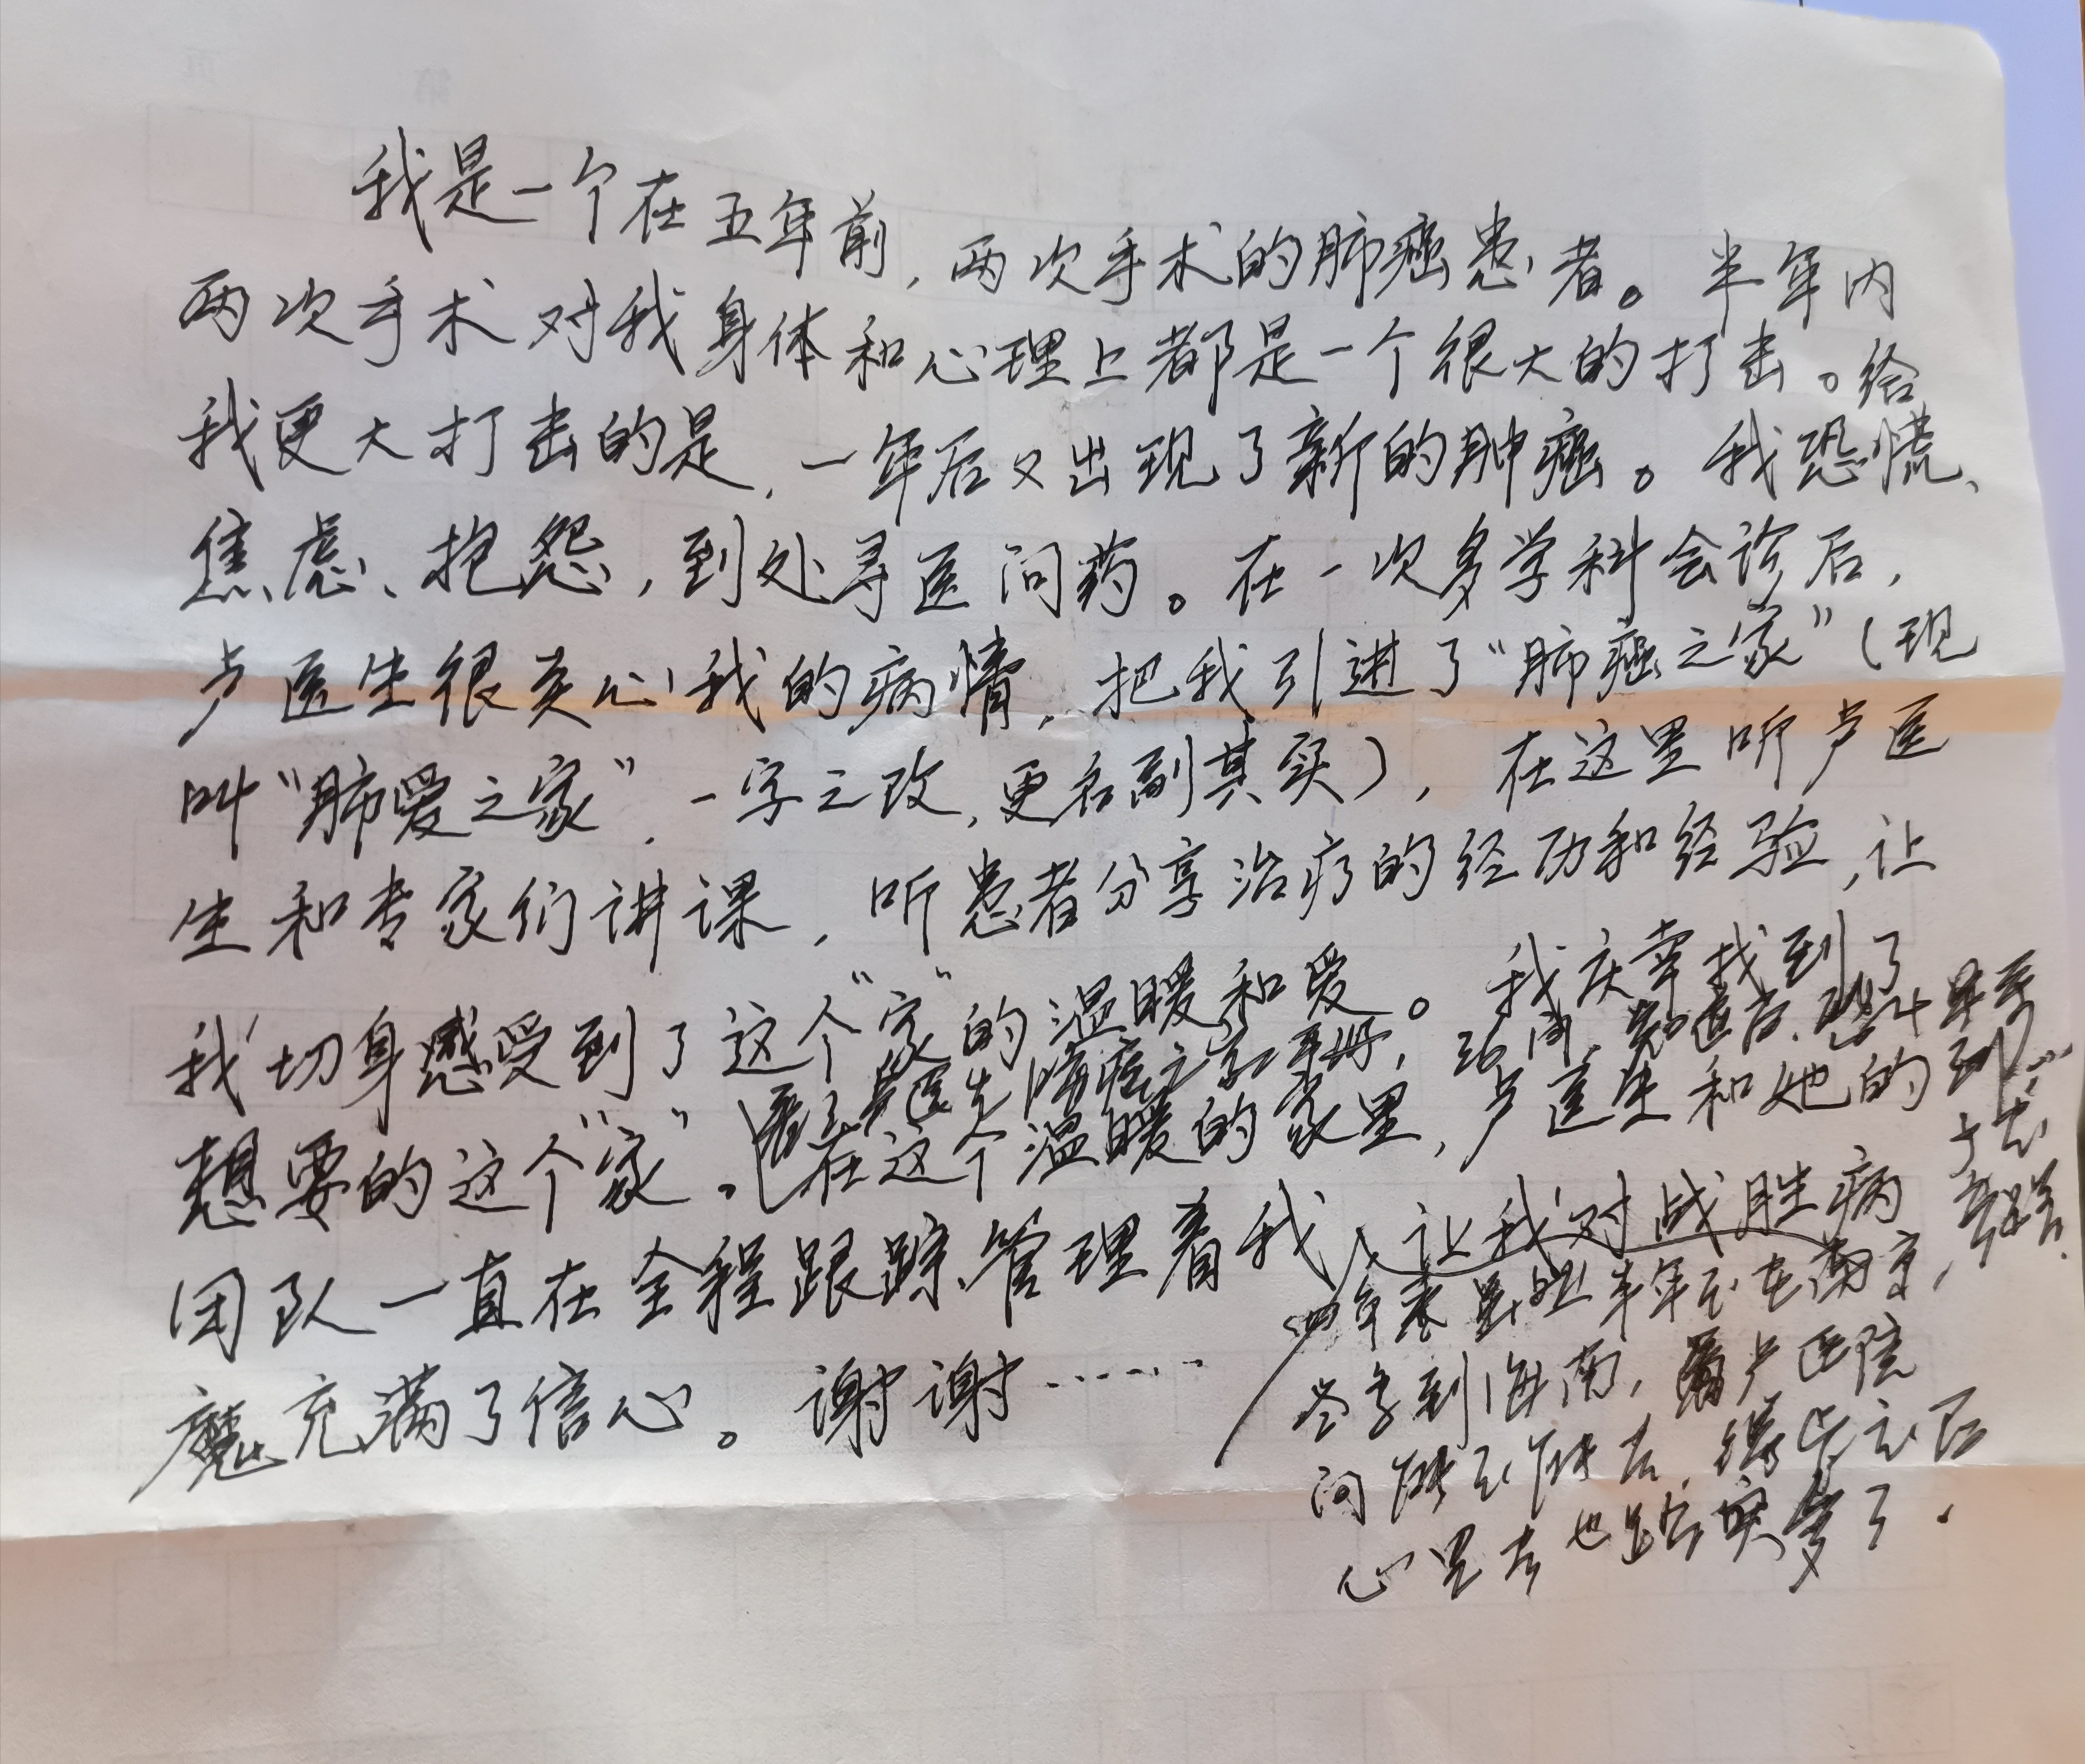 我是一个在五年前，两次手术的肺癌患者。半年内
两次手术对我身体和心理上都是一个很大的打击。给
我更大打击的是，一年后又出现了新的肿瘤。我恐慌、
焦虑、抱怨，到处寻医问药。在一次多学科会诊后，
卢医生很关心我的病情，把我引进了“肺癌之家”（现
叫“肺爱之家”，一字之改，更名副其实），在这里听卢医
生和专家们讲课，听患者分享治疗的经历和经验，让
我切身感受到了这个“家”的温暖和爱。我庆幸找到了
想要的这个“家”。在这个温暖的家里，卢医生和她的
团队一直在全程跟踪、管理着我，让我对战胜病
魔充满了信心。谢谢……
半年不在南京，
冬季到海南，
心里也踏实多了.